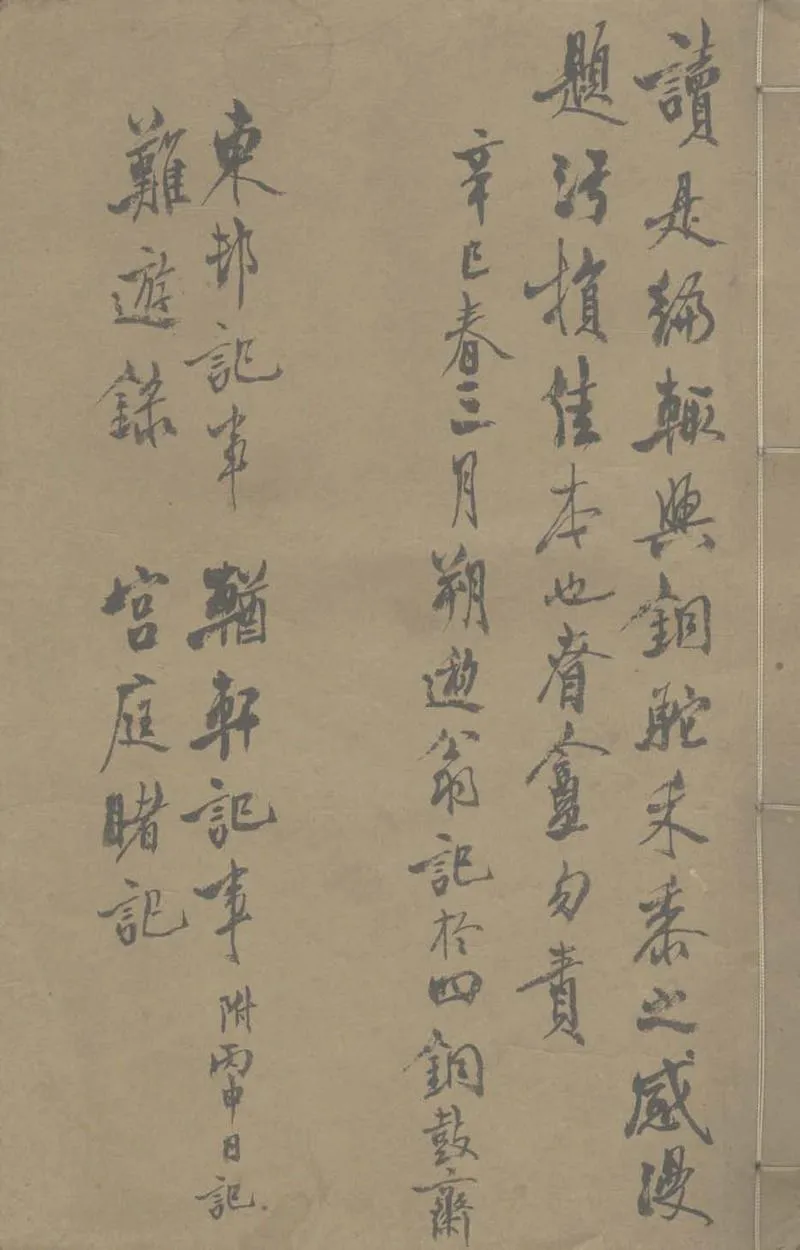 讀是編輒興銅駝禾黍之感漫
題污損佳本也盦勿責
辛巳春三月朔遯翁記於四銅鼓齋
東邨記事 輶軒記事 附丙申日記
難遊錄 宮庭睹記